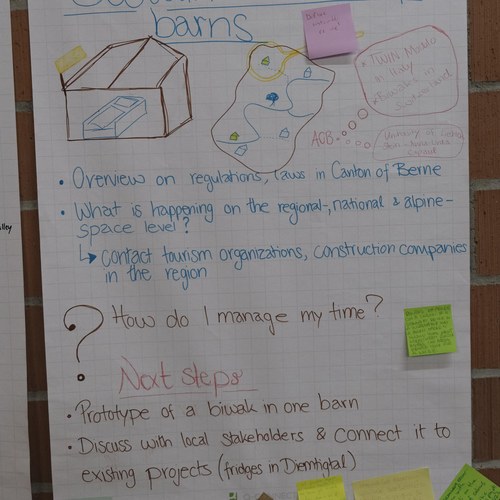 barns
Twin Model
in Italy
AGB
• Overview on regulations, laws in Canton of Berne
• What is happening on the regional-, national & alpine-
space level?
↳ contact tourism organizations, construction companies
in the region
? How do I manage my time?
Next steps
• Prototype of a biwak in one barn
• Discuss with local stakeholders & connect it to
existing projects (fridges in Diemtigtal)